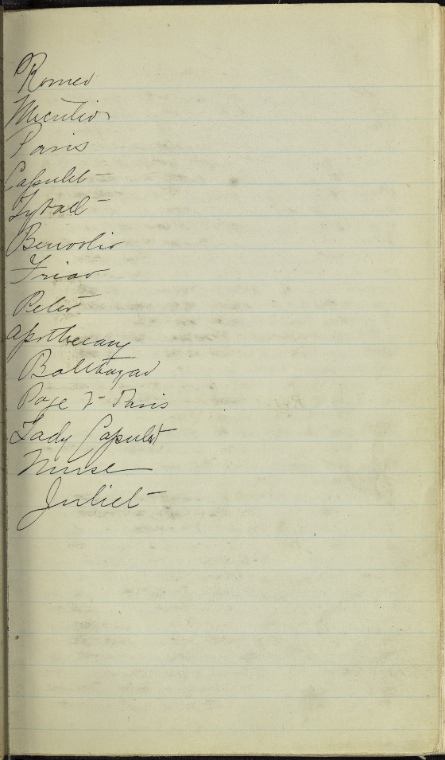 Romeo
Mercutio
Paris
Capulet
Tybalt
Benvolio
Friar
Peter
Apothecary
Balthazar
Page to Paris
Lady Capulet
Nurse
Juliet